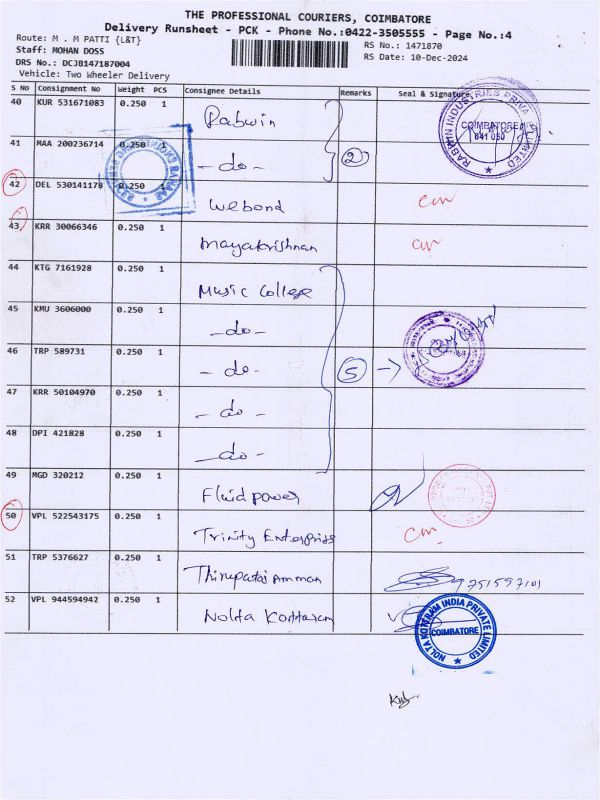 THE PROFESSIONAL COURIERS, COIMBATORE
Delivery Runsheet - PCK - Phone No.:0422-3505555 - Page No.:4
Route: M . M PATTI {L&T}
Staff: MOHAN DOSS
RS No.: 1471870
DRS No.: DCJB147187004
RS Date: 10-Dec-2024
Vehicle: Two Wheeler Delivery
S No Consignment No Weight PCS Consignee Details Remarks Seal & Signature
40 KUR 531671083 0.250 1 Rabwin
RABWIN INDUSTRIES PRIVATE LIMITED
COIMBATORE
641 050
41 MAA 200236714 0.250 1 -do- 2
42 DEL 530141178 0.250 1 Webond cm
43 KRR 30066346 0.250 1 Mayakrishnan cm
44 KTG 7161928 0.250 1 Music College
45 KMU 3606000 0.250 1 -do-
46 TRP 589731 0.250 1 -do- 5 →
47 KRR 50104970 0.250 1 -do-
48 DPI 421828 0.250 1 -do-
49 MGD 320212 0.250 1 Fluidpower
50 VPL 522543175 0.250 1 Trinity Enterprises cm
51 TRP 5376627 0.250 1 Thirupatai Amman 9751597101
52 VPL 944594942 0.250 1 Nolta Kottaram
NOLTA KOTERAM INDIA PRIVATE LIMITED
COIMBATORE